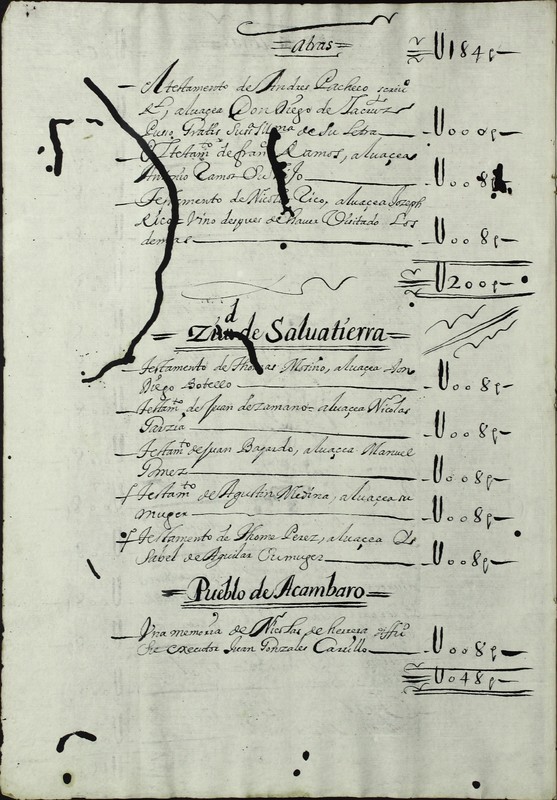 atras U184p
testamento de Andres Pacheco
albaçea Don Diego de
Gratis de Su Letra U000p
testamto de Franco Ramos, albaçea
Antonio Ramos Su Hijo U008p
Testamento de Nicolas Rico, albaçea Joseph
Rico Vino despues de hauer Visitado Los
demas U008p
U200p
Ziud de Saluatierra
testamento de Thomas Merino, albaçea Don
Diego Botello U008p
testamto de Juan de zamano albaçea Nicolas
Garzia U008p
testamto de Juan Bajardo, albaçea Manuel
Gomez U008p
testamto de Agustin Medina, albaçea su
muger U008p
testamento de Thome Perez, albaçea Ys
Sabel de Aguilar Su muger U008p
Pueblo de Acambaro
Vna memoria de Nicolas de herrera diffto
Juan Gonzales Carrillo U008p
U048p